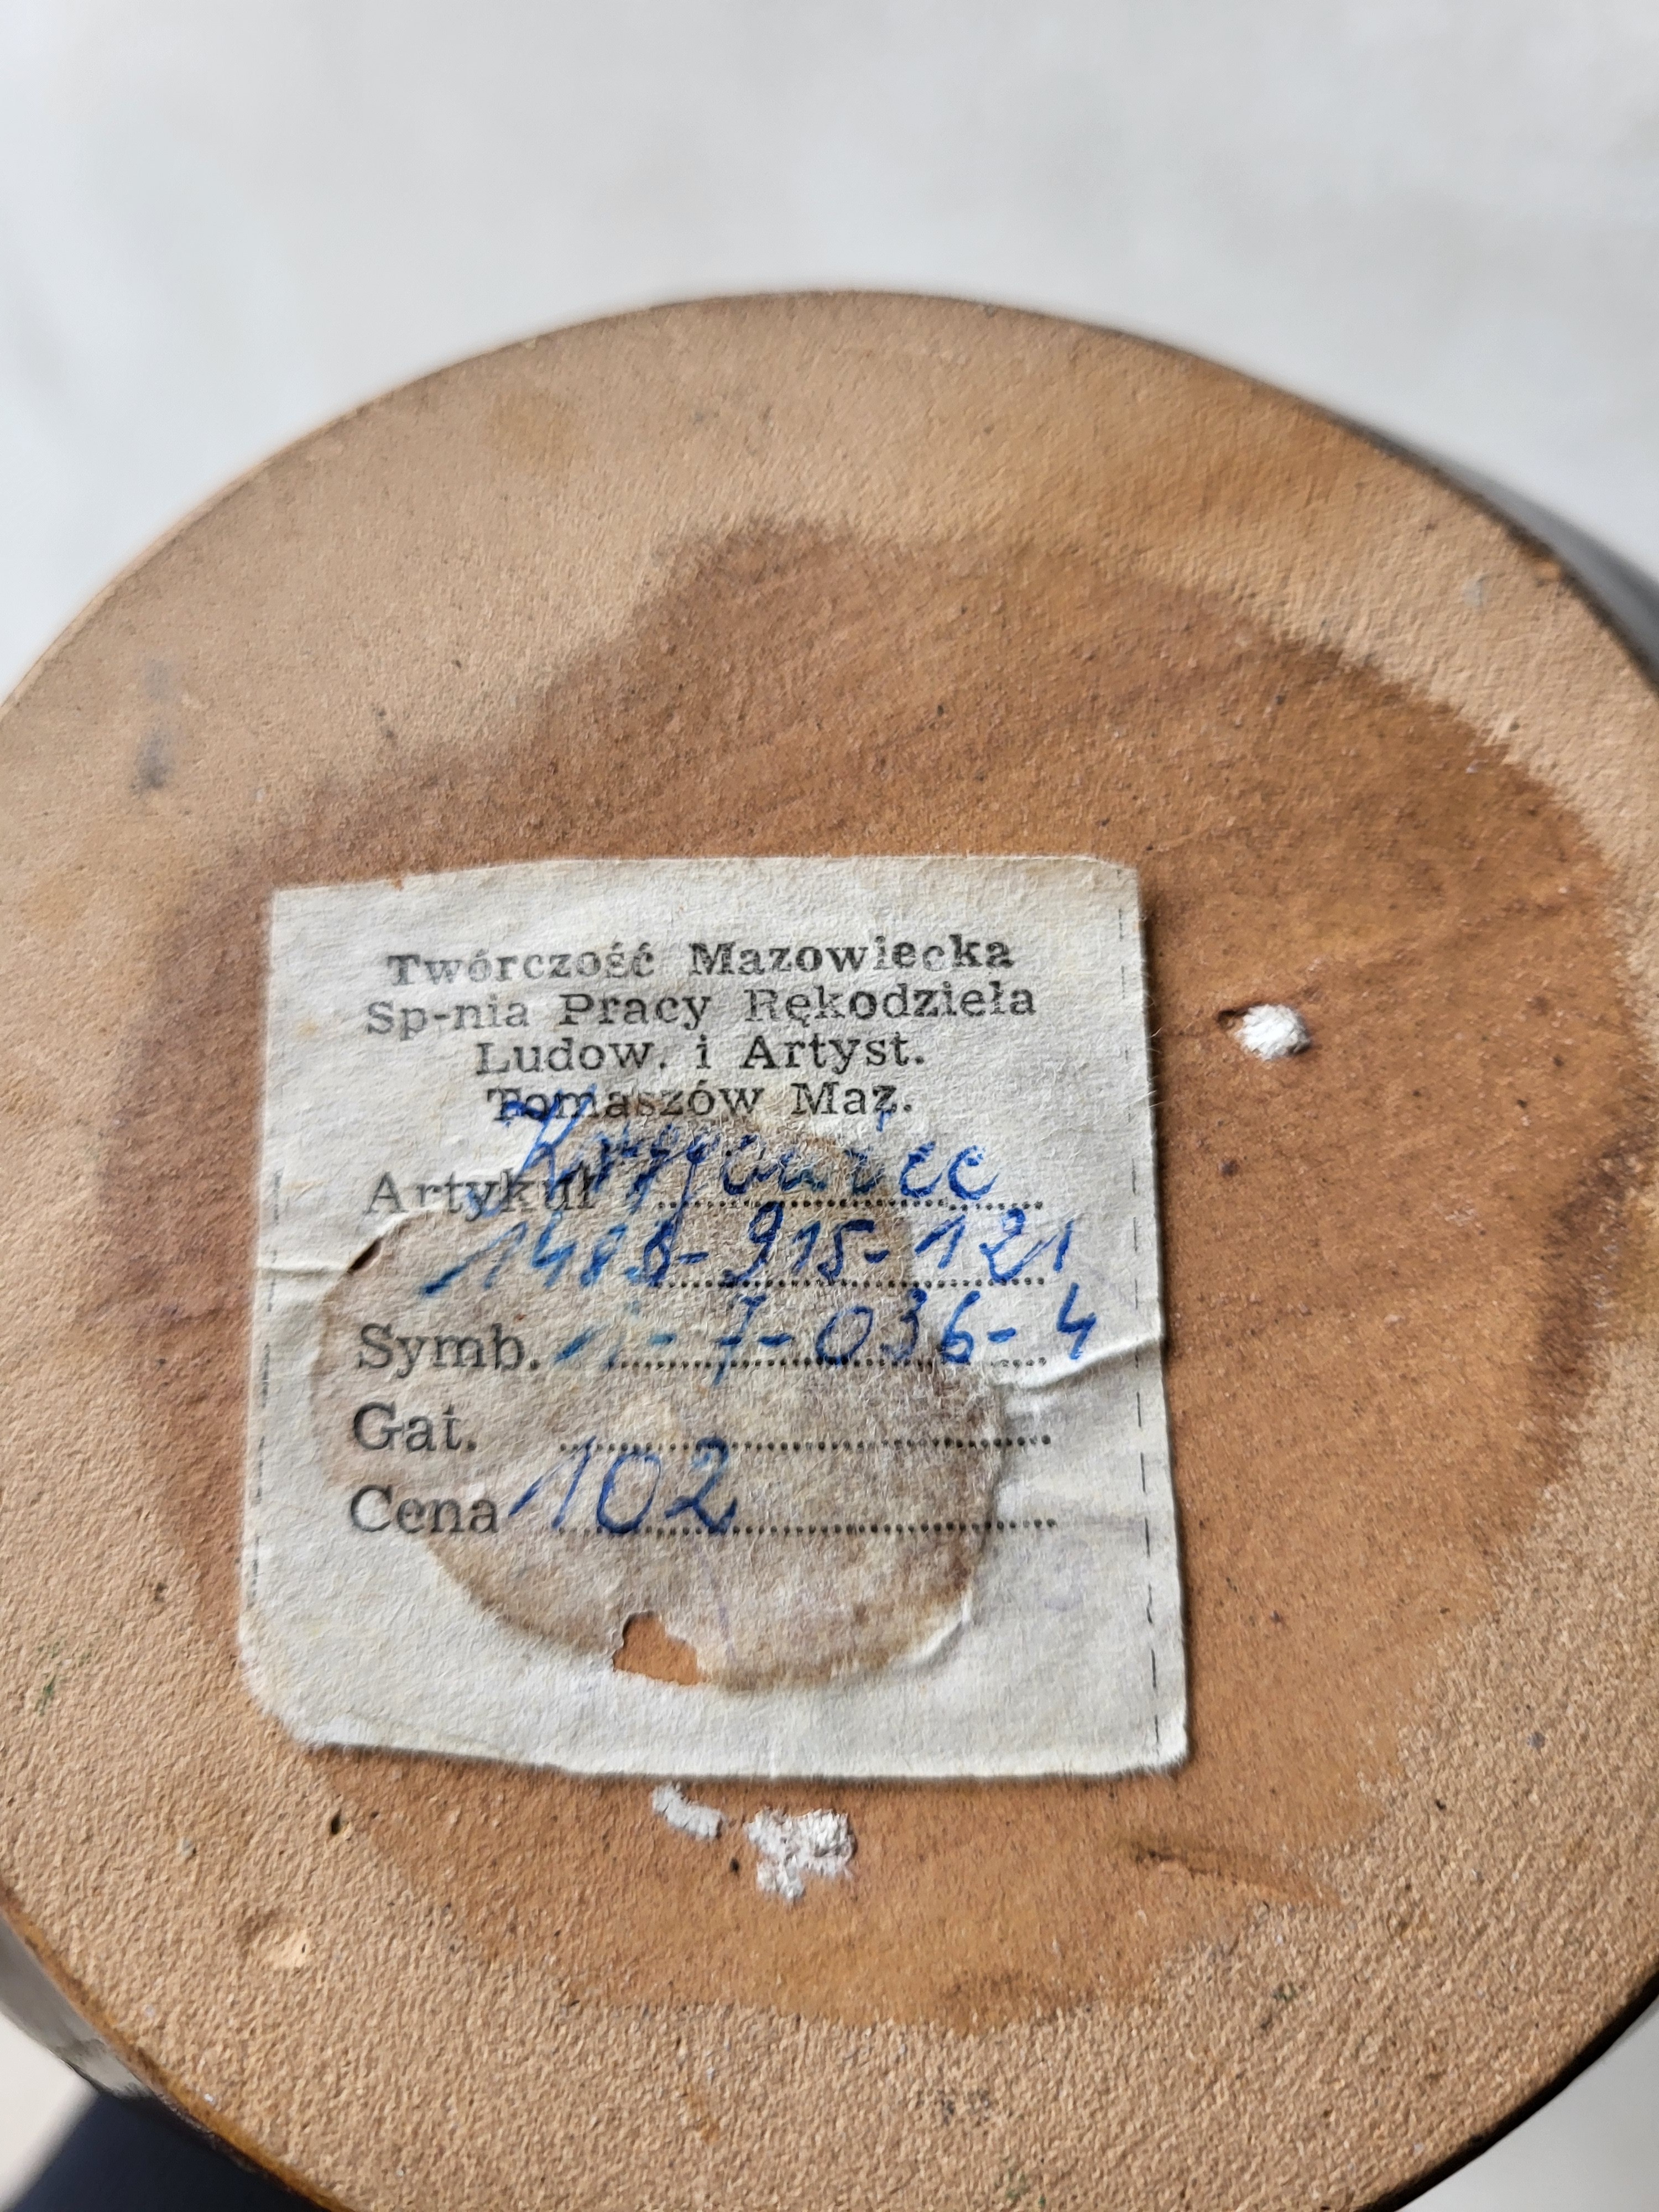 Twórczość Mazowiecka
Sp-nia Pracy Rękodzieła
Ludow. i Artyst.
Tomaszów Maz.
Artykuł
1483-915-121
Symb. 1-7-036-4
Gat.
Cena 102